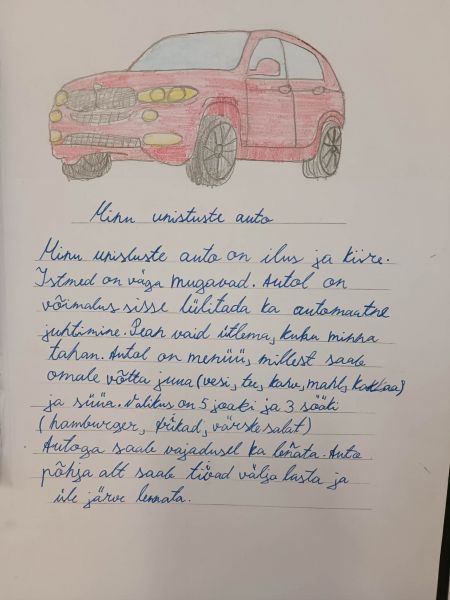 Minu unistuste auto
Minu unistuste auto on ilus ja kiire.
Istmed on väga mugavad. Autol on
võimalus sisse lülitada ka automaatne
juhtimine. Pean vaid ütlema, kuhu minna
tahan. Autol on menüü, millest saab
omale võtta juua (vesi, tee, kohv, mahl, kakao)
ja süüa. Valikus on 5 jooki ja 3 sööki
(hamburger, friikad, värske salat)
Autoga saab vajadusel ka lennata. Auto
põhja alt saab tiivad välja lasta ja
üle järve lennata.